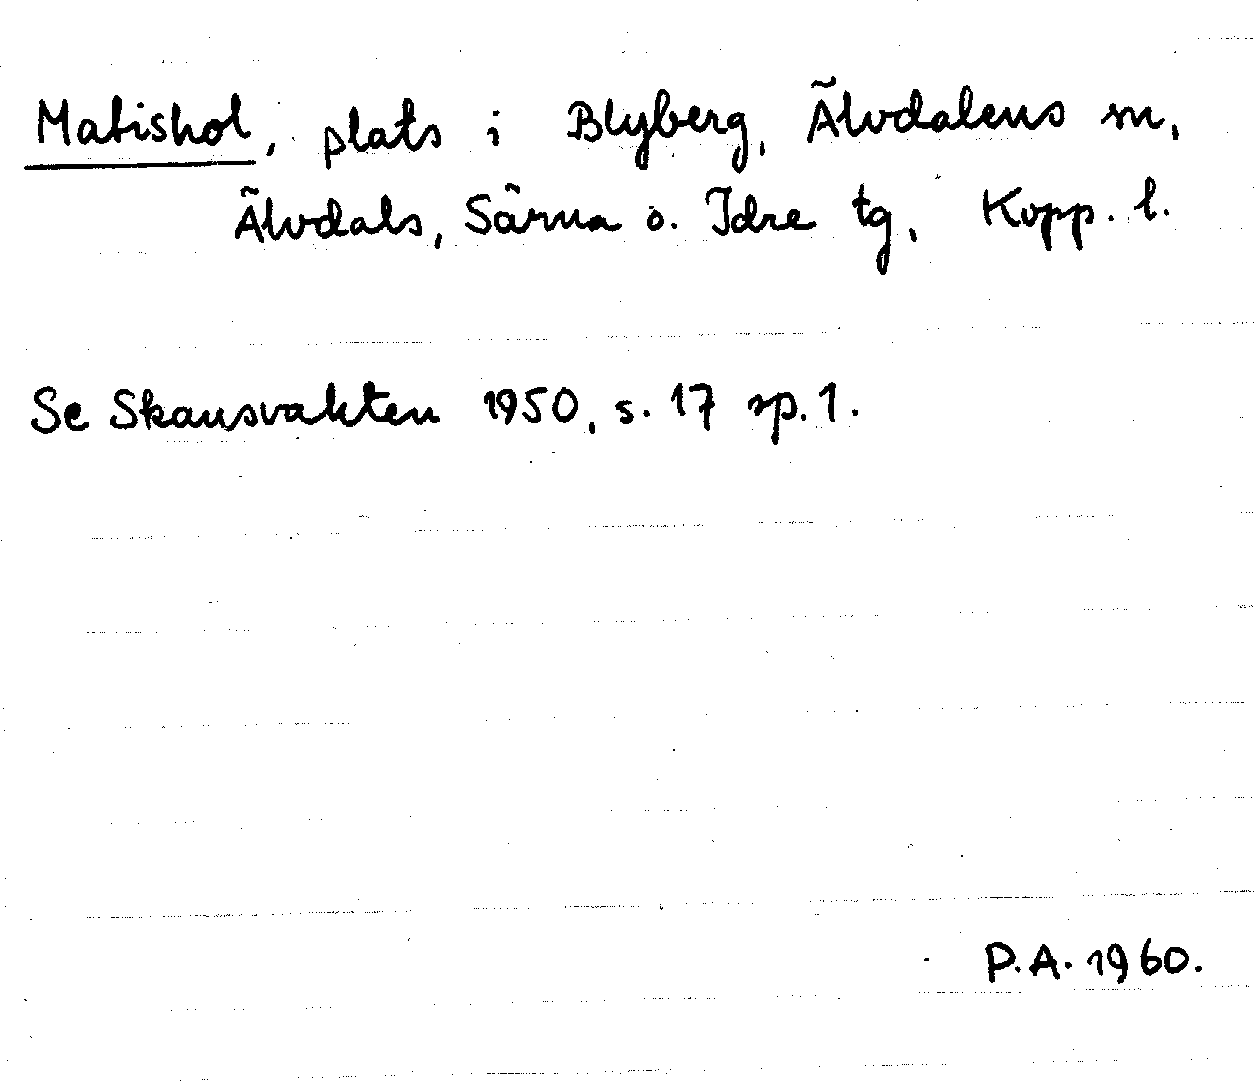 Matishol, plats i Blyberg, Älvdalens sn,
Älvdals, Särna o. Idre tg, Kopp. l.
Se Skansvakten 1950, s. 17 sp. 1.
P.A. 1960.